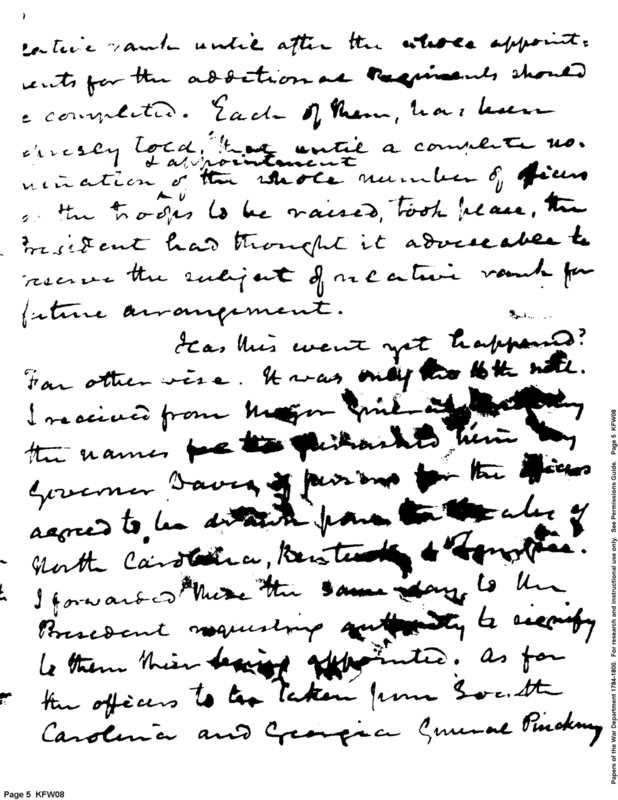 lative rank until after the whole appoint=
ments for the additional Regiments should
be completed. Each of them, has been
expressly told, that until a complete no.
& appointment
mination of the whole number of officers
the troops to be raised, took place, the
President had thought it adviseable to
reserve the subject of relative rank for
future arrangement.
Has this event yet happened?
Far otherwise. It was only the
I received from Major General
the names him by
Governor Davie of persons for the officers
agreed to be drawn from the of
North Carolina, Kentucky &
I forwarded these the same day, to the
President requesting authority to signify
to them their being appointed. As for
the officers to be taken from South
Carolina and Georgia General Pinckney
Page 5 KFW08
Papers of the War Department 1784-1800. For research and instructional use only. See Permissions Guide. Page 5 KFW08